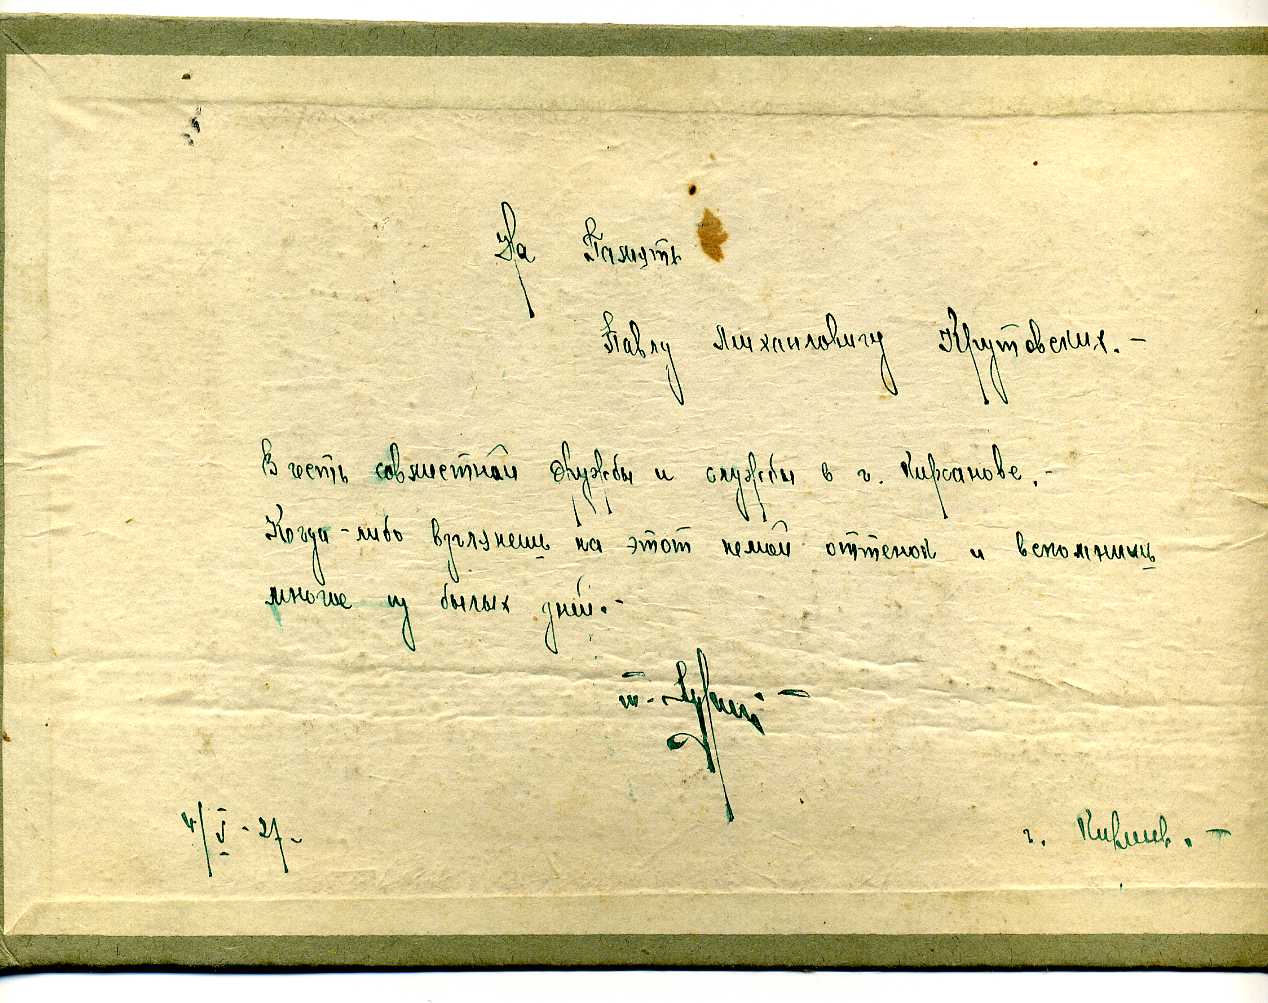 На Память
Павлу Михаиловичу Крутовских. –
В честь совместной дружбы и службы в г. Кирсанове. –
Когда-либо взглянешь на этот немой оттенок и вспомнишь
многое из былых дней. –
4/V - 27 -
г. Кирсанов. –